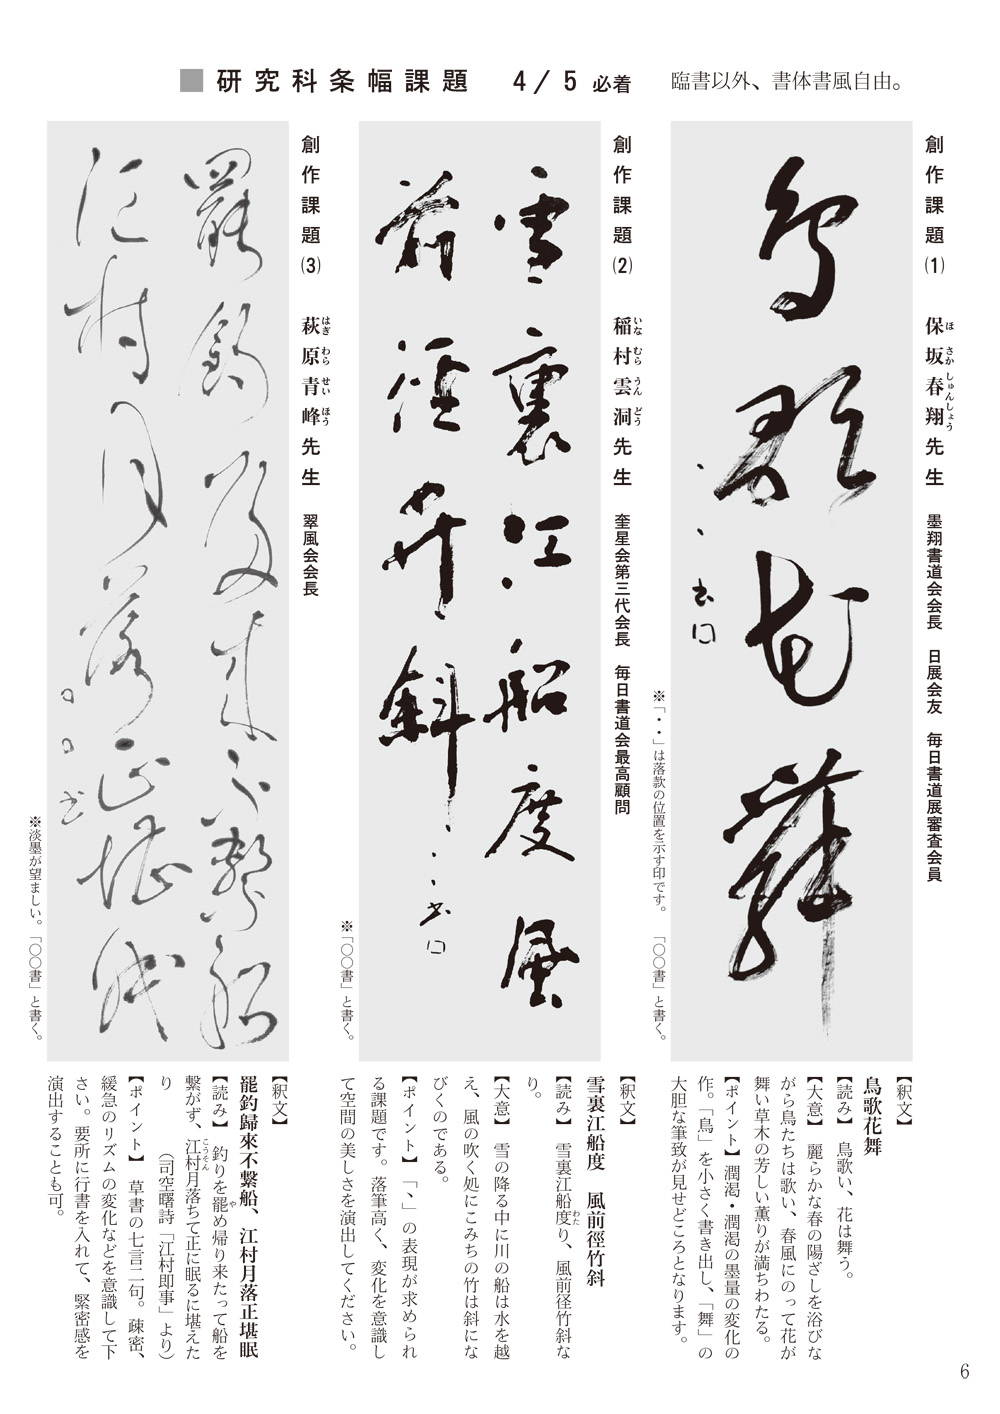 ■研究科条幅課題　4/5 必着　臨書以外、書体書風自由。
創作課題(1)　保坂春翔先生　墨翔書道会会長　日展会友　毎日書道展審査会員
ほ さか しゅんしょう
鳥歌花舞
・・書□
※「・・」は落款の位置を示す印です。　「○○書」と書く。
【釈文】
鳥歌花舞
【読み】　鳥歌い、花は舞う。
【大意】　麗らかな春の陽ざしを浴びな
がら鳥たちは歌い、春風にのって花が
舞い草木の芳しい薫りが満ちわたる。
【ポイント】潤渇・潤渇の墨量の変化の
作。「鳥」を小さく書き出し、「舞」の
大胆な筆致が見せどころとなります。
創作課題(2)　稲村雲洞先生　奎星会第三代会長　毎日書道会最高顧問
いな むら うん どう
雪裏江船度風
前徑竹斜
・・書□
※「○○書」と書く。
【釈文】
雪裏江船度　風前徑竹斜
【読み】　雪裏江船度り、風前径竹斜な
わた
り。
【大意】　雪の降る中に川の船は水を越
え、風の吹く処にこみちの竹は斜にな
びくのである。
【ポイント】「、」の表現が求められ
る課題です。落筆高く、変化を意識し
て空間の美しさを演出してください。
創作課題(3)　萩原青峰先生　翠風会会長
はぎ わら せい ほう
罷釣歸來不繋船
江村月落正堪眠
○○書
※淡墨が望ましい。「○○書」と書く。
【釈文】
罷釣歸來不繋船、江村月落正堪眠
【読み】　釣りを罷め帰り来たって船を
や
繋がず、江村月落ちて正に眠るに堪えた
こうそん
り　　（司空曙詩「江村即事」より）
【ポイント】　草書の七言二句。疎密、
緩急のリズムの変化などを意識して下
さい。要所に行書を入れて、緊密感を
演出することも可。
6